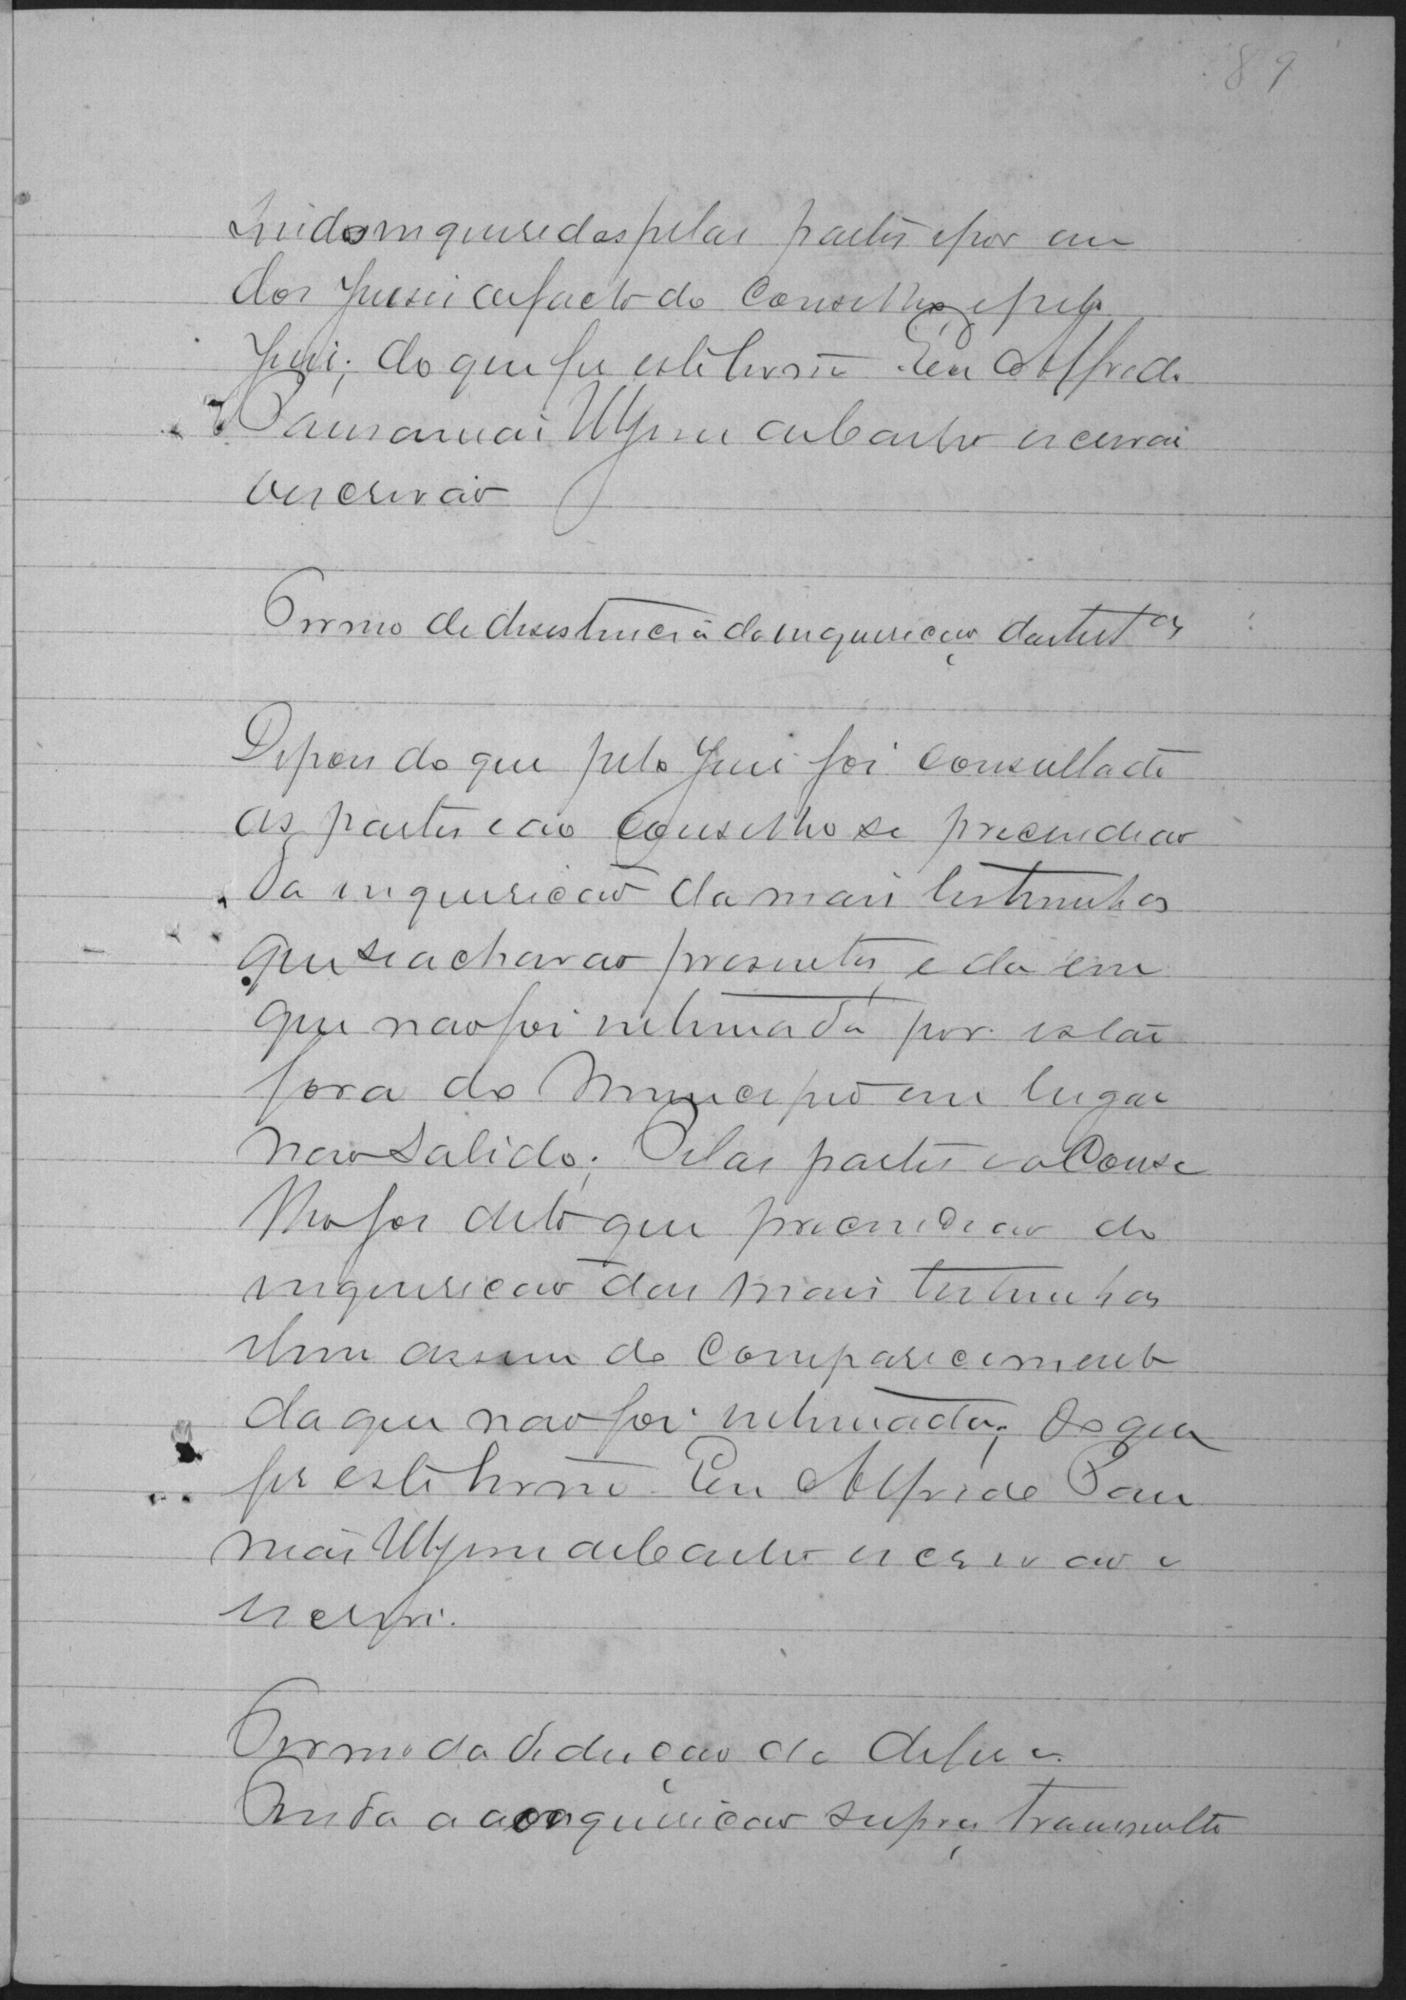 89
sido inqueridas pelas partes e por um
dos Juises de facto do Conselho, e pelo
Juiz; do que fiz este termo. Eu Alfredo
escrivão
Termo de desistencia da inquirição das test.as
Depois do que pelo Juiz foi consultado
as partes e ao Conselho se precindião
da inquirição da mais testimunhas
que se achavão presentes, e da em
que não foi intimada por estar
fora do Municipio em lugar
não sabido; Pelas partes e o Conse
lho foi dito que precindião do
inquirição das mais testimunhas
bem assim do comparecimento
da que não foi intimada; Do que
fiz este termo. Eu Alfredo
escrivão e
escrevi.
Termo da dedução da defesa
Finda a inquirição supra, transmitte